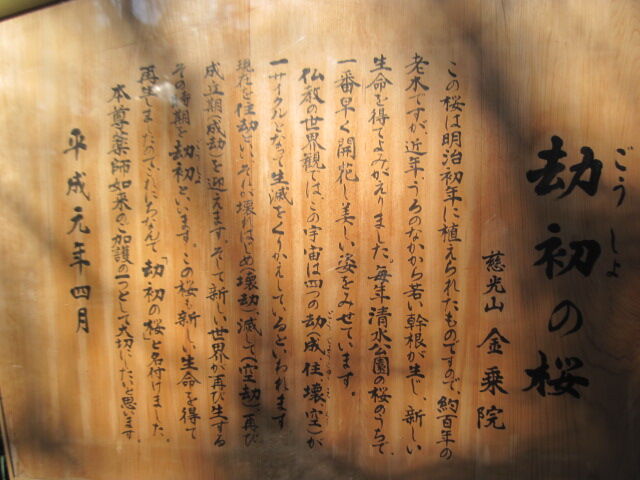 ごうしょ
劫初の桜
慈光山 金乗院
この桜は明治初年に植えられたものですので、約百年の
老木ですが、近年、うろのなかから若い幹根が生じ、新しい
生命を得てよみがえりました。毎年清水公園の桜のうちで、
一番早く開花し美しい姿をみせています。
仏教の世界観では、この宇宙は四つの劫(成住壊空)が
一サイクルとなって生滅をくりかえしているといわれます
現在を住劫といい、それが壊れはじめ(壊劫)、滅して(空劫)、再び
成立期(成劫)を迎えます。そして新しい世界が再び生ずる
その時期を劫初といいます。この桜も新しい生命を得て
再生しましたのでこれにちなんで「劫初の桜」と名付けました。
本尊薬師如来のご加護の一つとして大切にしたいと思います。
平成元年四月